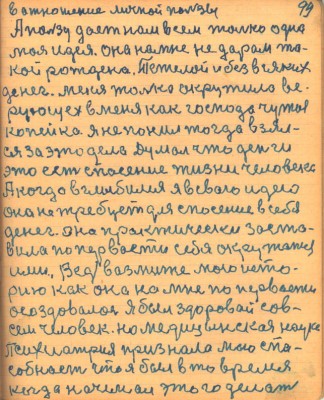 в отношение личной пользы 99
А пользу дает нам всем только одна
моя идея. она на мне не даром та-
кой рождена. Тетелой и без всяких
денег. меня только окрутило ве-
рующех в меня как господа чужая
копейка я не понил тогда взял-
ся за это дела Думал что денги
это ест спасение жизни человека
А когда вглыбился я в сваго идею
она не требует для спасение в себя
денег. Она практически заста-
вила по первости себя окружающ
ими, Вед возмите маю исто-
рию как она на мне по первости
осоздовалоя Я был здоровой сов-
сем человек. но медицинская наука
Психиатрия признала мою спа-
собност что я был в то время
когда начинал этого делат